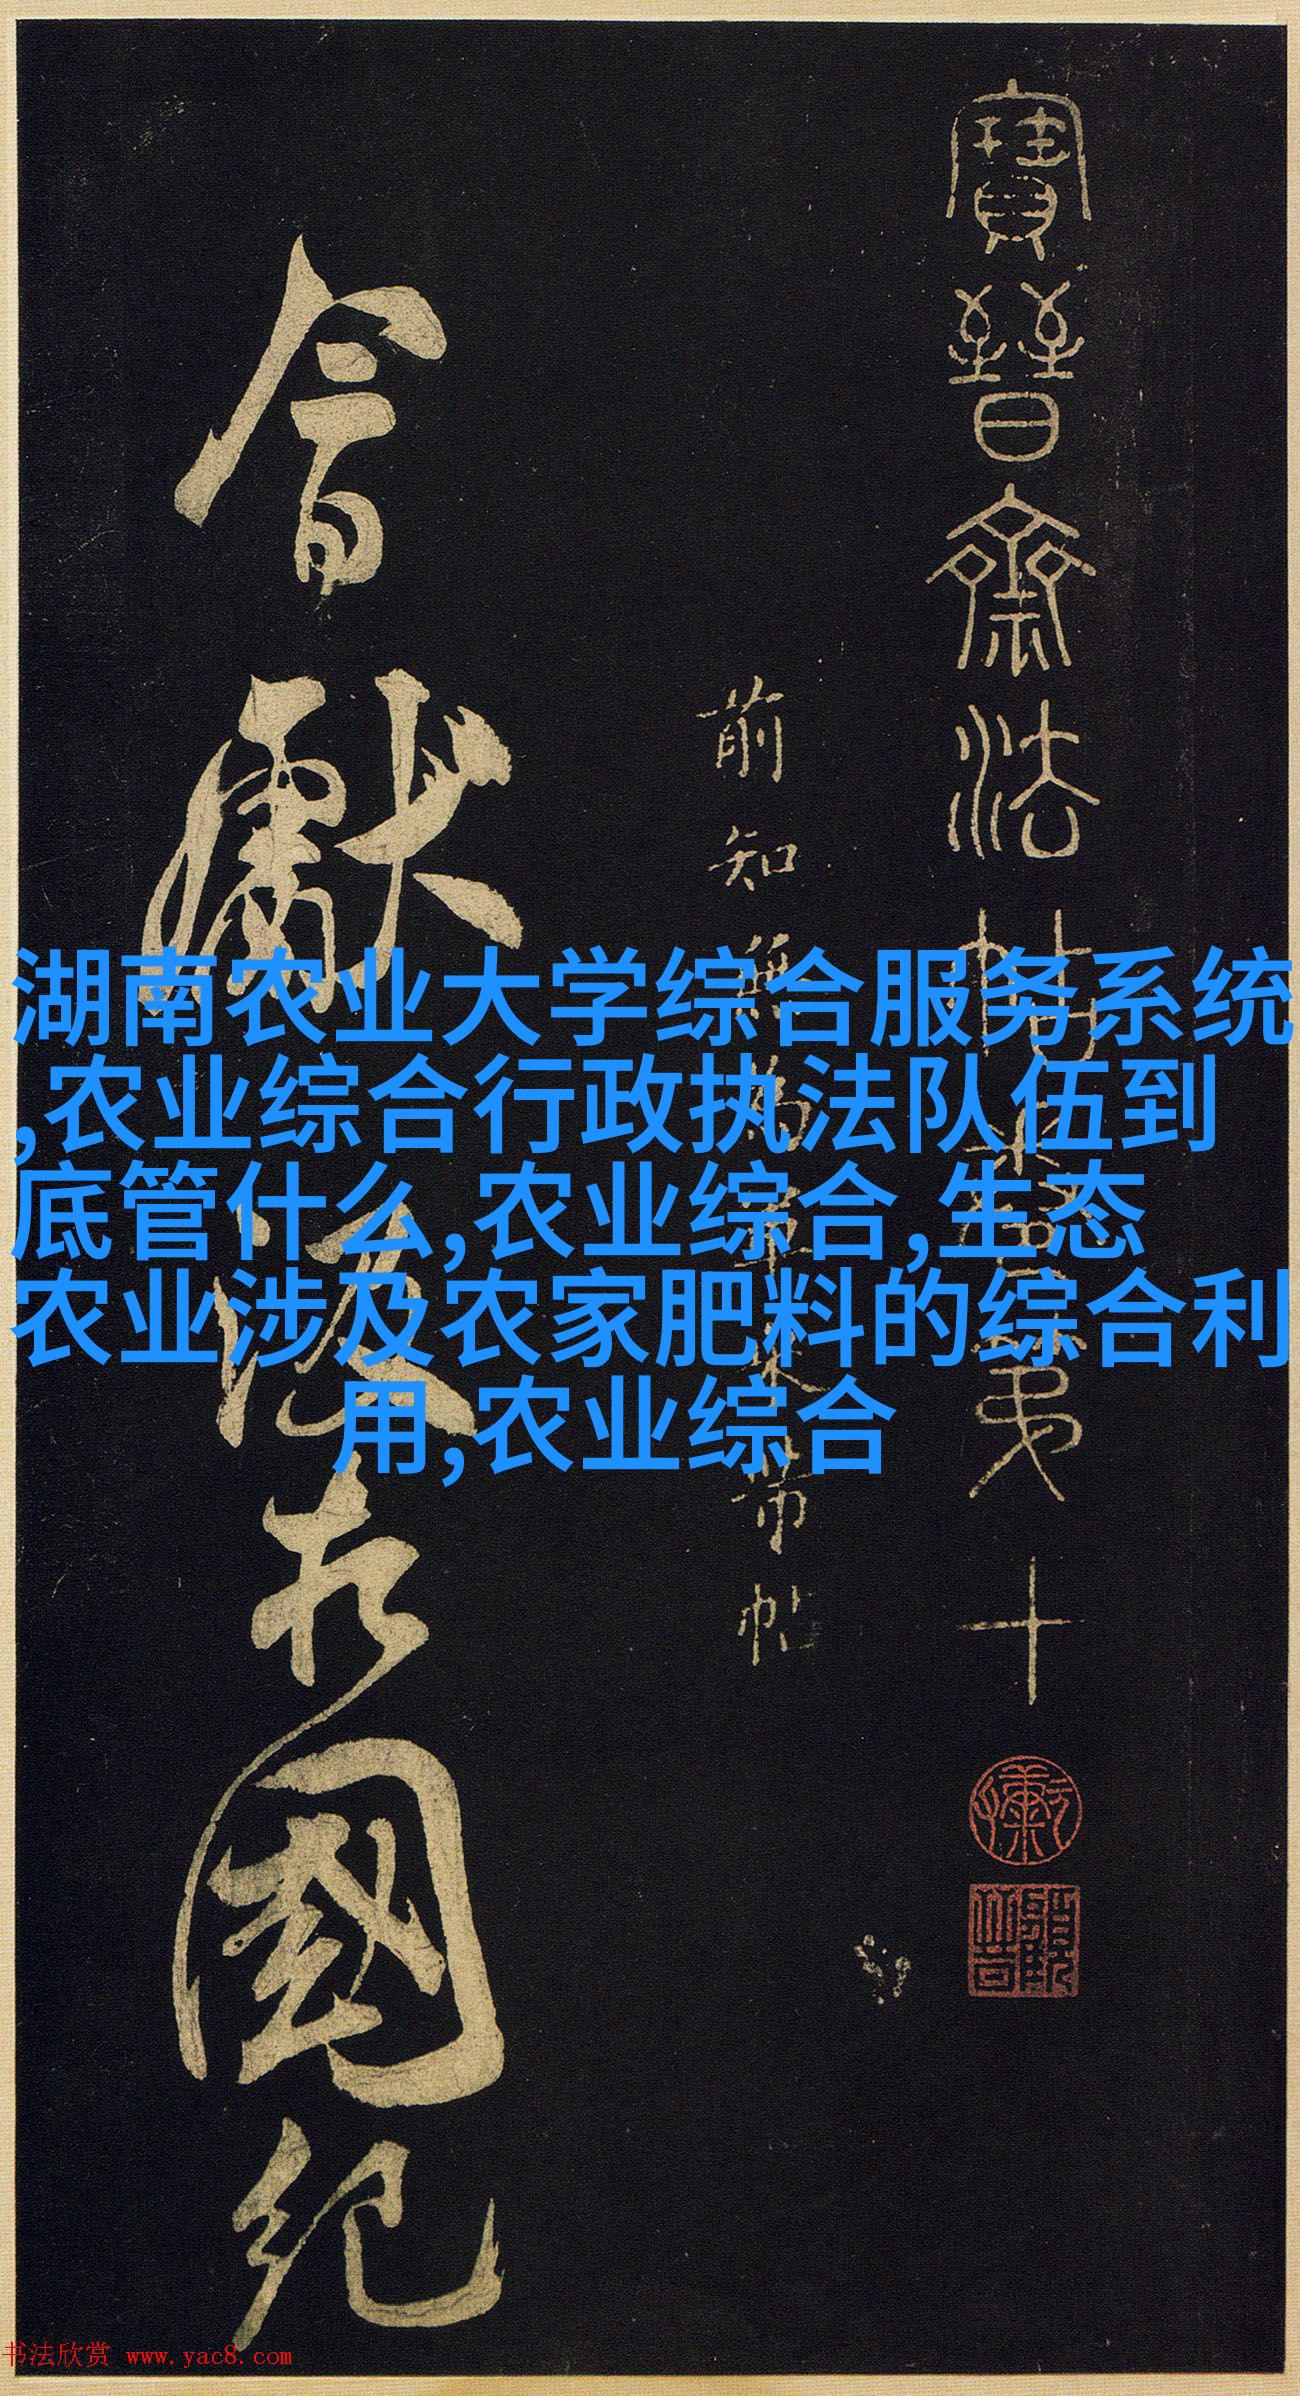 寶晉齋法帖卷第十
前知無為軍米芾帖
會獻
於國紀
湖南农业大学综合服务系统
,农业综合行政执法队伍到
底管什么,农业综合,生态
农业涉及农家肥料的综合利
用,农业综合
书法欣赏 www.yac8.com